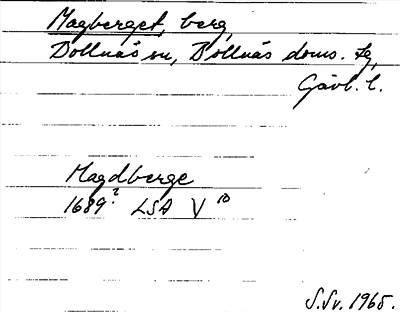 Magberget, berg,
Bollnäs sn, Bollnäs doms. tg,
Gävl. l.
Magdberge
1689? LSA V 10
S.Sv. 1965.